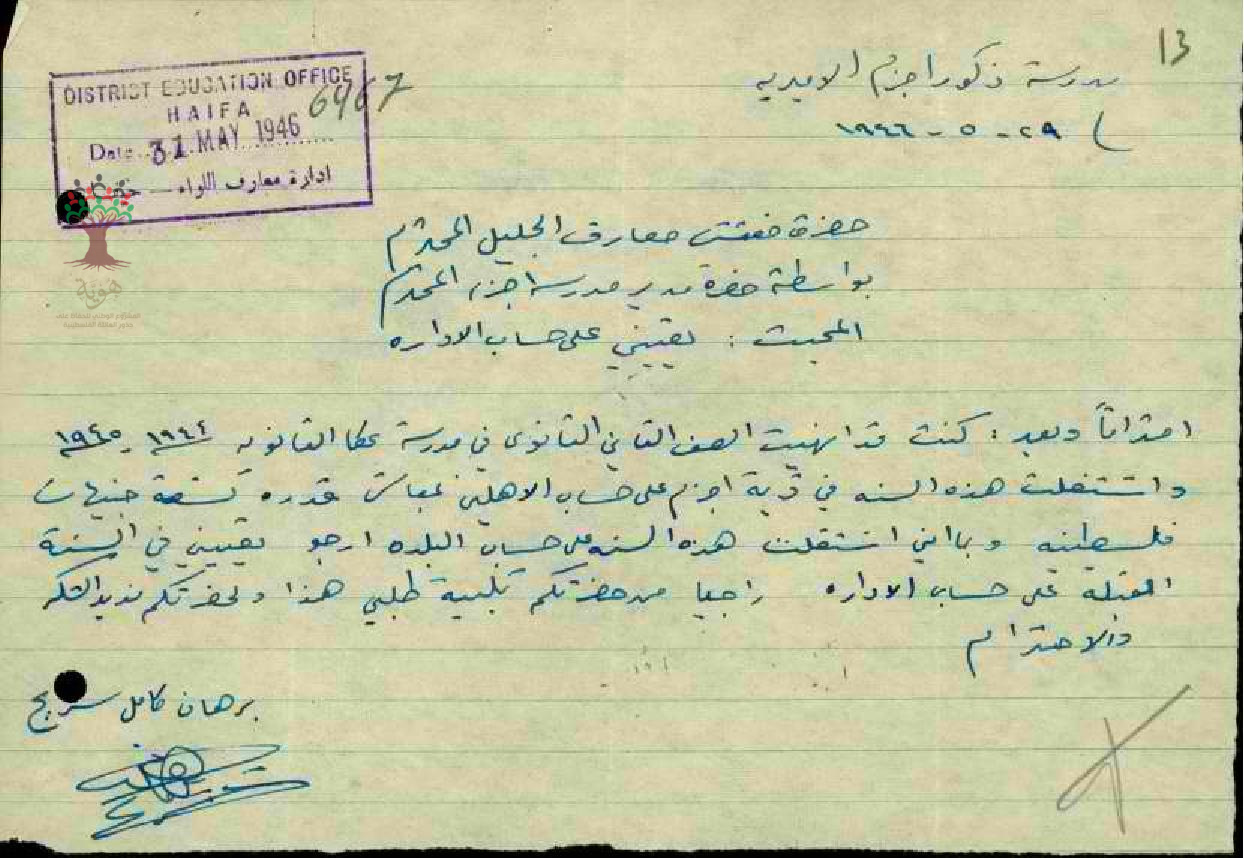 13
مدرسة ذكور اجزم الاميريه
٢٩ - ٥ - ١٩٤٦
DISTRICT EDUCATION OFFICE
HAIFA
6967
Date 31 MAY 1946
ادارة معارف اللواء —
هوية
حضرة مفتش معارف الجليل المحترم
بواسطة حضرة مدير مدرسة اجزم المحترم
المبحث : تعييني على حساب الاداره
احتراماً وبعد : كنت قد انهيت الصف الثاني الثانوي في مدرسة عكا الثانويه ١٩٤٤ - ١٩٤٥
واشتغلت هذه السنه في قرية اجزم على حساب الاهلين بمعاش قدره تسعة جنيهات
فلسطينيه وبما اني اشتغلت هذه السنه على حساب البلده ارجو تعييني في السنة
المقبلة على حساب الاداره راجيا من حضرتكم تلبية طلبي هذا ولحضرتكم مزيد الشكر
والاحترام
برهان كامل